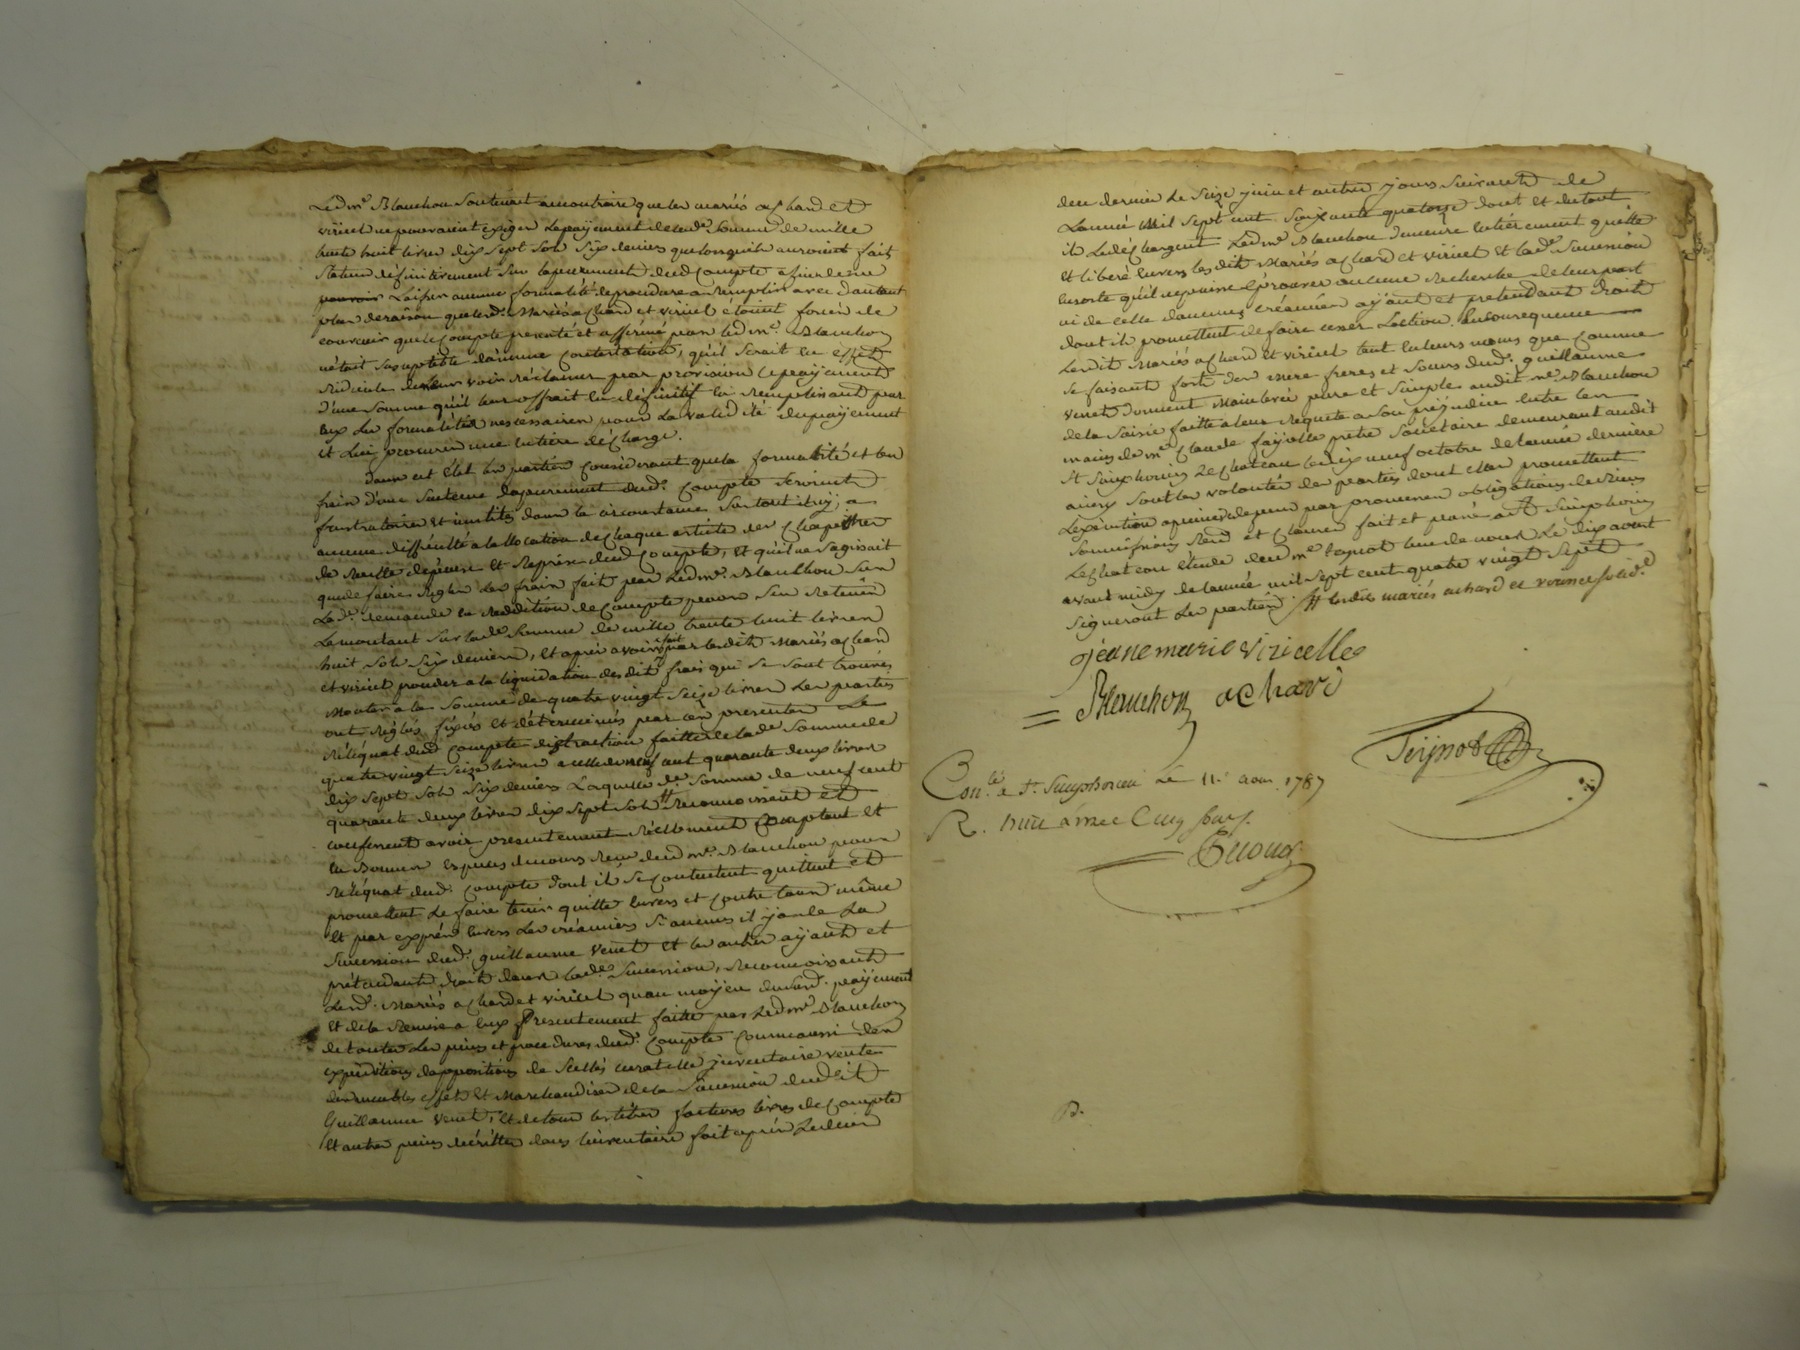 Led. me. Blanchon soutenait au contraire que les mariés achard et
viricel ne pouvaient exiger le payement de lad.e somme de mille
trente huit livres dix sept sols six deniers que lorsquils auroient fait
statuer définitivement sur lapurement dud compte afin de ne
laisser aucune formalité de procedure a remplir avec dautant
plus de raison que lesd. Mariés achard et viricel étoient forcés de
convenir que le compte presenté et affirmé par led me. Blanchon
n'étoit susceptible d'aucune contestation, qu'il serait en effet
ridicule de leur voir réclamer par provision le payement
d'une somme qu'il leur offrait en définitif en remplissant par
eux les formalités nessessaires pour la validité du payement
et lui procurer une entiere décharge.
dans cet état les parties considerant que la formalité et les
frais d'une sentence dapurement dud. compte seroient
frustratoires et inutiles dans la circonstance surtout ny a
aucune difficulté a la llocation de chaque article des chapittres
de recette dépense et reprise dud compte, et qu'il ne s'agissait
que de faire regler les frais fait par led me. Blanchon sur
lad. demande en reddition de compte pour s'en retenir
le montant sur lad.e somme de mille trente huit livres
huit sols six deniers, et après avoir fait par lesdits Mariés achard
et viricel proceder a la liquidation desdits frais qui se sont trouvés
monter a la somme de quatre vingt seize livres les parties
ont réglés fixés et déterminés par ces presentes le
réliquat dud compte distraction faitte de lad.e somme de
quatre vingt seize livres a celle de neuf cent quarante deux livres
dix sept sols six deniers laquelle de. somme de neuf cent
quarante deux livres dix sept sols reconnoissent et
confessent avoir presentement réellement comptant et
en bonnes especes de cours reçu dud me. Blanchon pour
réliquat dud. compte dont il se contentent quittent et
promettent le faire tenir quitte envers et contre tous même
et par exprès envers les créanciers si aucuns il y a de la
succession dud. guillaume Venet et les autres ayants et
prétendants droit dans lad.e succession, reconnoissants
lesd. Mariés achard et viricel quau moyen dud. payement
et de la remise a eux presentement faitte par led me Blanchon
de toutes les pieces et procedures dud. compte comme aussi des
expéditions dappositions de scellés curatelle inventaire ventes
des meubles effets et Marchandises de la succession dudit
Guillaume Venet, et de tous les titres factures livres de compte
et autres pieces décrittes dans linventaire fait après le décès
de ce dernier le seize juin et autres jours suivants de
Lannée Mil sept cent soixante quatorze dont et du tout
ils le déchargent led me Blanchon demeure entièrement quitte
et libéré envers lesdits Mariés achard et viricel et lad.e succession
ensorte qu'il ne puisse éprouver aucune recherche de leur part
ni de celle daucuns créanciers ayant et pretendant droit
dont ils promettent de faire cesser laction. En consequence
lesdits Mariés achard et viricel tant en leurs noms que comme
se faisant forts des mere freres et soeurs dud. guillaume
venet donnent Mainlevée pure et simple audit me. Blanchon
de la saisie faitte a leur requete a son préjudice entre les
mains de me Claude fayolle prêtre societaire demeurant audit
St Simphorien le chateau le dix neuf octobre de lannée derniere
ainsy sont les volontés des parties dont elles promettent
l'exécution a peine de tous par promesses obligations de biens
soumissions rend. et clauses fait et passé a St Simphorien
le chateau étude dud me teynot lun de nous le dix aout
avant midy de lannée mil sept cent quatre vingt sept
signeront les parties. // lesdits mariés achard et viricel solid.t
jéanemarie viricelle
Blanchon achard
Teÿnot
Con.lé a St. Simphorien le 11. aout 1787
R. huit livres Cinq sous.